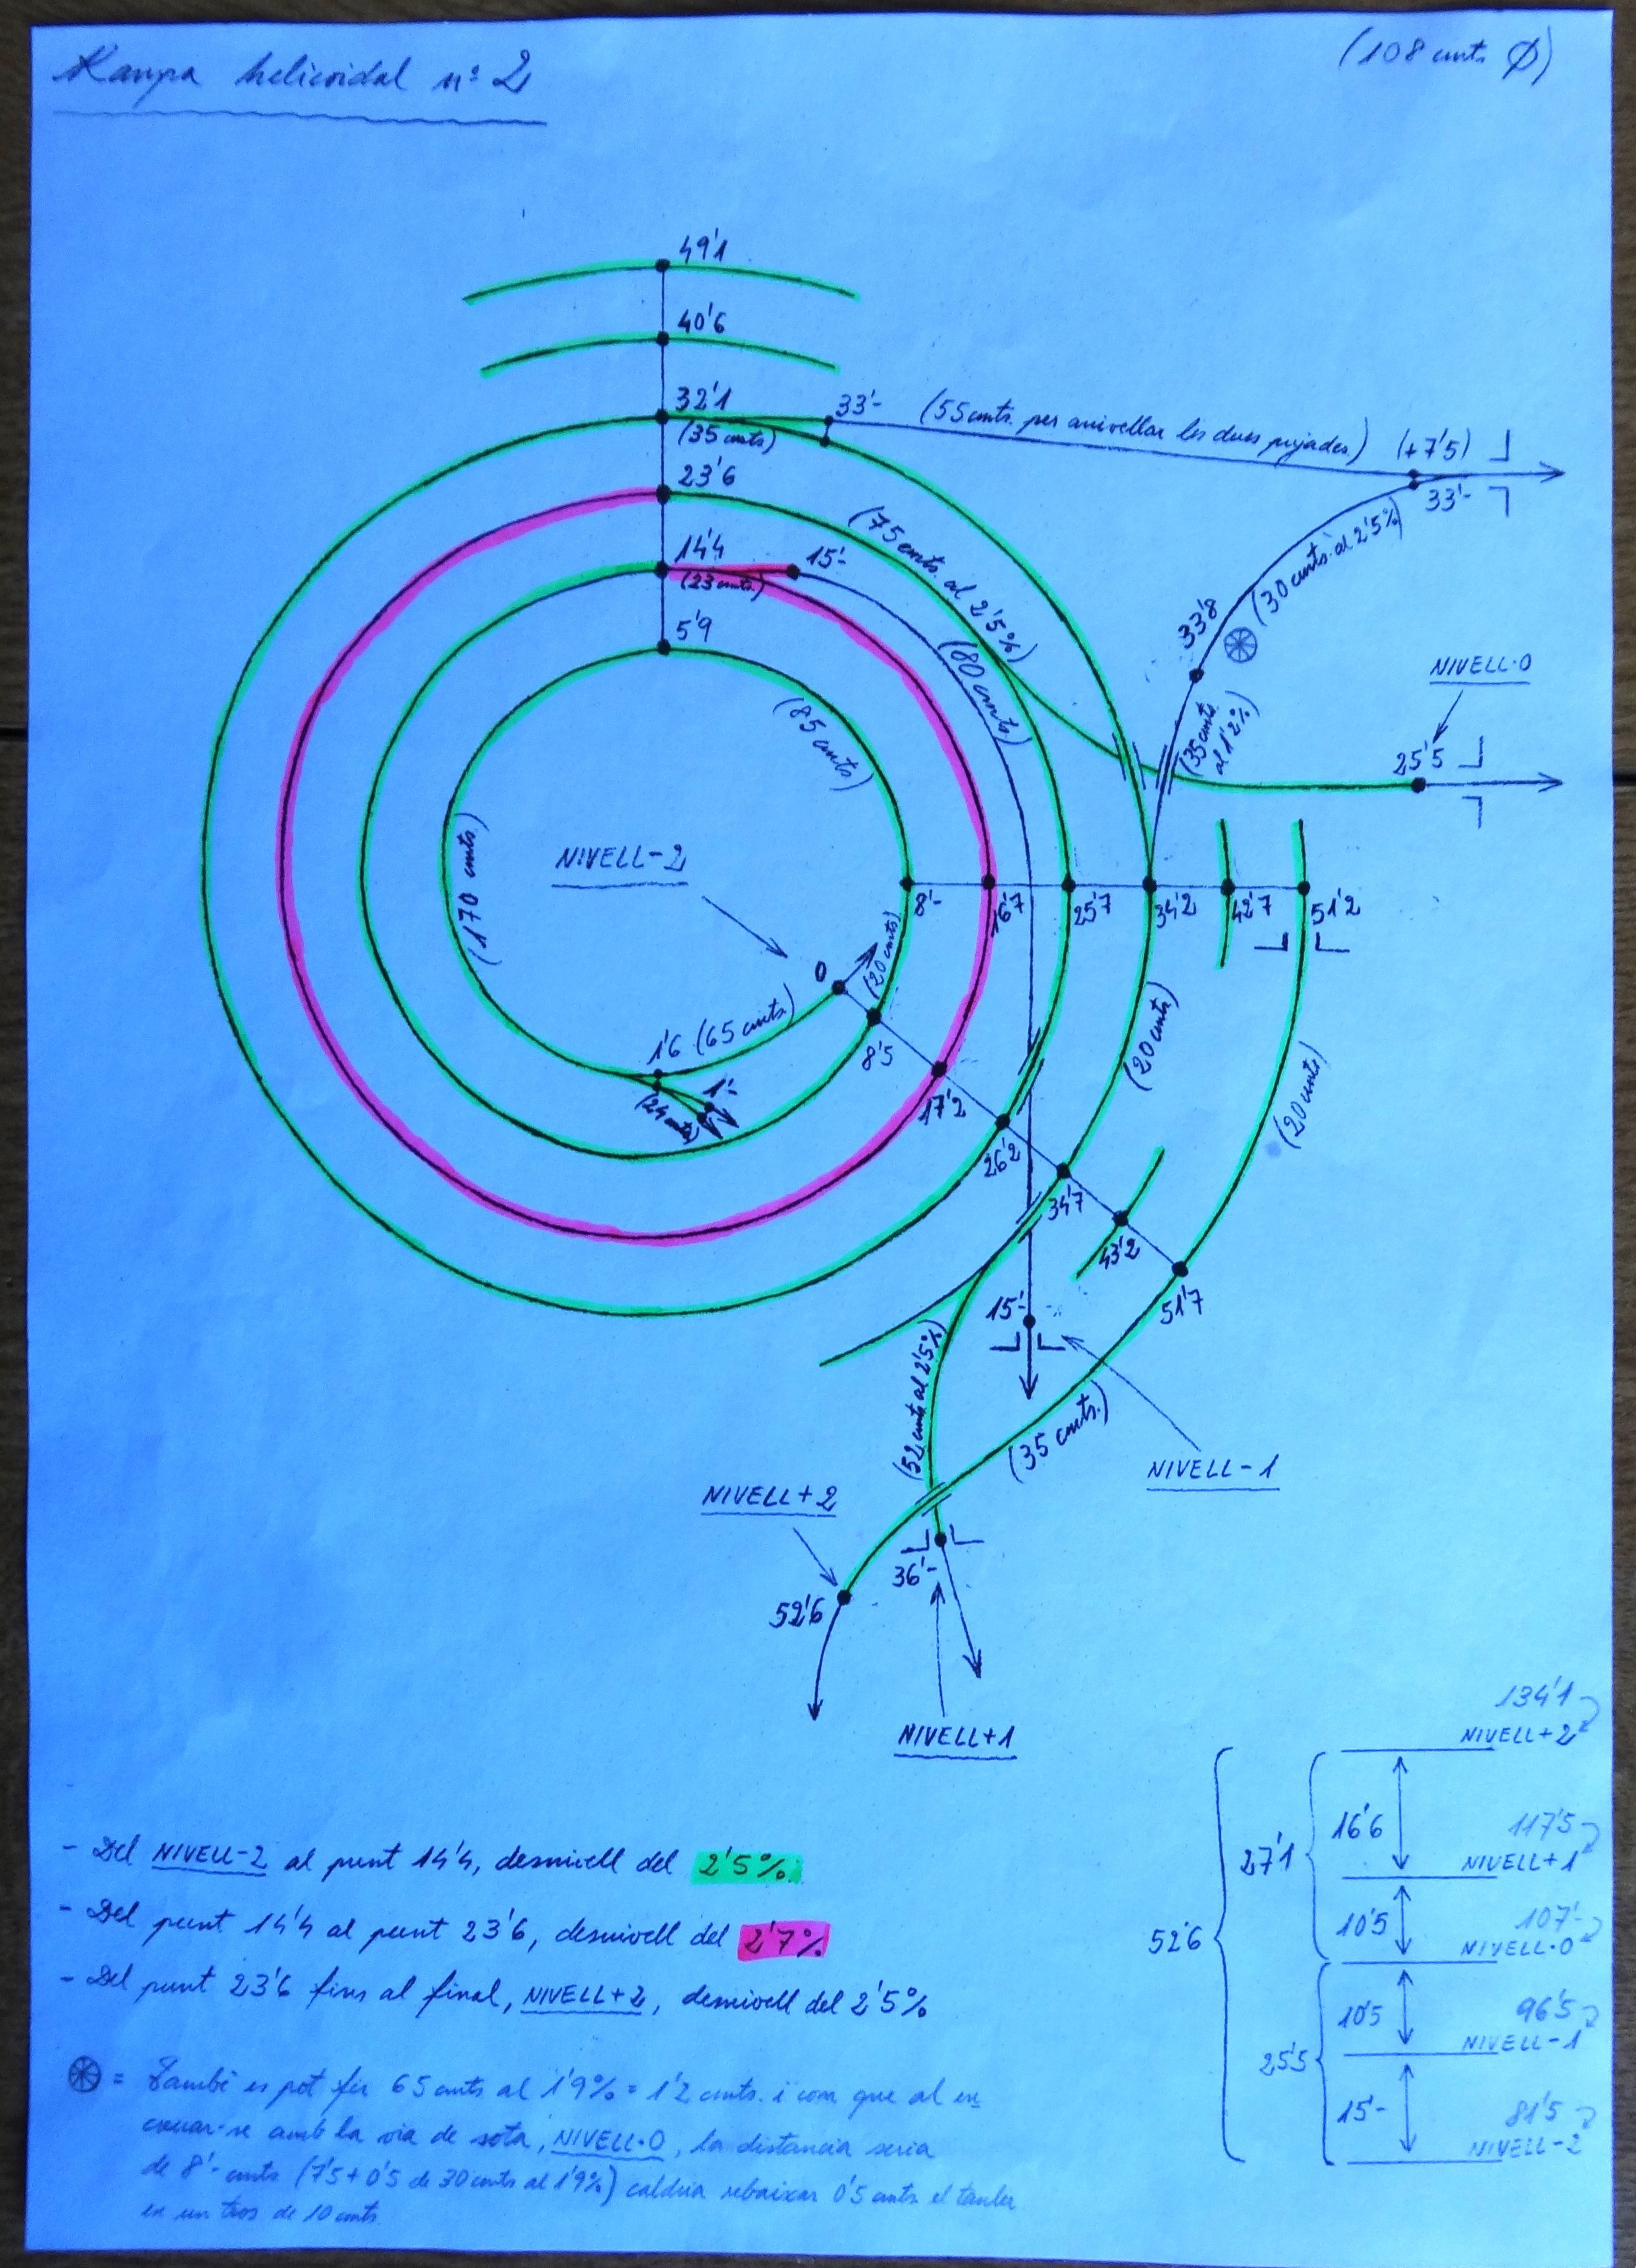 Rampa helicoidal nº 2
(108 cmts Ø)
49'1
40'6
32'1
(35 cmts)
33'-
(55 cmts. per anivellar les dues pujades)
(+7'5)
33'-
23'6
(75 cmts. al 2'5%)
(30 cmts. al 2'5%)
14'4
(23 cmts.)
15'-
33'8
5'9
(80 cmts)
(85 cmts)
(35 cmts. al 1'2%)
NIVELL·0
25'5
(170 cmts.)
NIVELL-2
8'-
16'7
25'7
34'2
42'7
51'2
0
(20 cmts)
1'6 (65 cmts)
8'5
1'-
(24 cmts)
17'2
26'2
(20 cmts)
(20 cmts)
34'7
43'2
51'7
15'-
(52 cmts al 2'5%)
(35 cmts.)
NIVELL-1
NIVELL+2
36'-
52'6
NIVELL+1
134'1
NIVELL+2
16'6
117'5
NIVELL+1
27'1
10'5
107'-
NIVELL·0
52'6
10'5
96'5
NIVELL-1
25'5
15'-
81'5
NIVELL-2
- Del NIVELL-2 al punt 14'4, desnivell del 2'5%.
- Del punt 14'4 al punt 23'6, desnivell del 2'7%
- Del punt 23'6 fins al final, NIVELL+2, desnivell del 2'5%
= També es pot fer 65 cmts al 1'9% = 1'2 cmts. i com que al en-
creuar-se amb la via de sota, NIVELL·0, la distancia seria
de 8'- cmts (7'5+0'5 de 30 cmts al 1'9%) caldria rebaixar 0'5 cmts. el tauler
en un tros de 10 cmts.